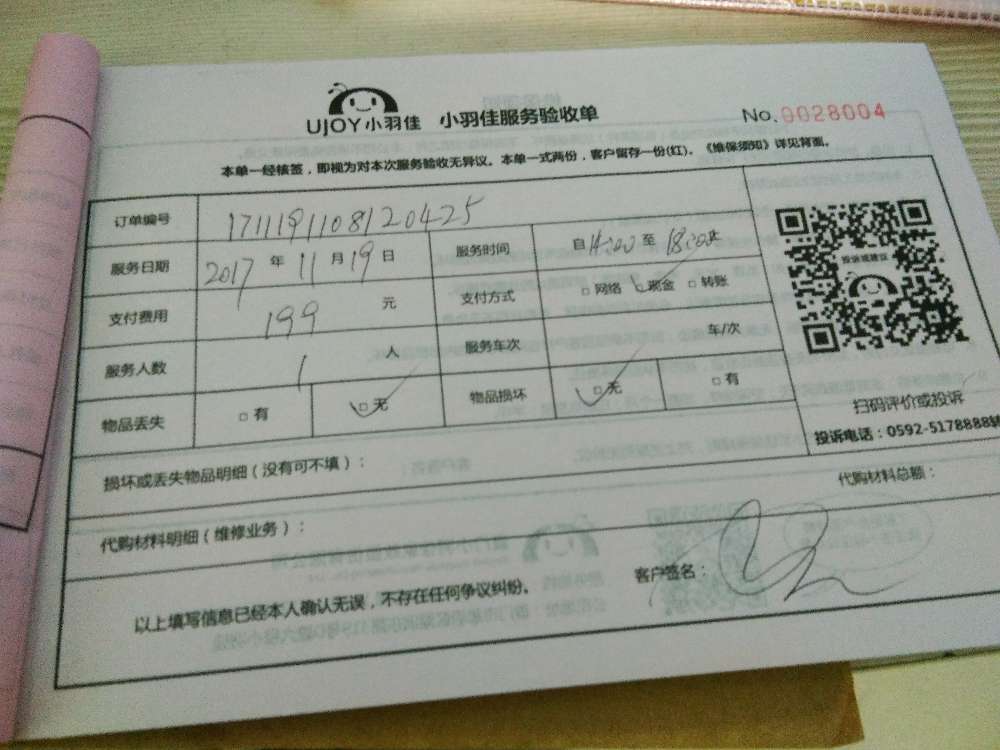 UJOY小羽佳 小羽佳服务验收单 No.0028004
本单一经核签，即视为对本次服务验收无异议。本单一式两份，客户留存一份(红)。《维保须知》详见背面。
订单编号 171119110812042​5
服务日期 2017 年 11 月 19 日 服务时间 自 14:00 至 18:00止
支付费用 199 元 支付方式 □ 网络 □ 现金 □ 转账
服务人数 1 人 服务车次 车/次
物品丢失 □ 有 □ 无 物品损坏 □ 无 □ 有
投诉或建议
扫码评价或投诉
投诉电话：0592-5178888转
损坏或丢失物品明细（没有可不填）：
代购材料明细（维修业务）： 代购材料总额：
以上填写信息已经本人确认无误，不存在任何争议纠纷。 客户签名：